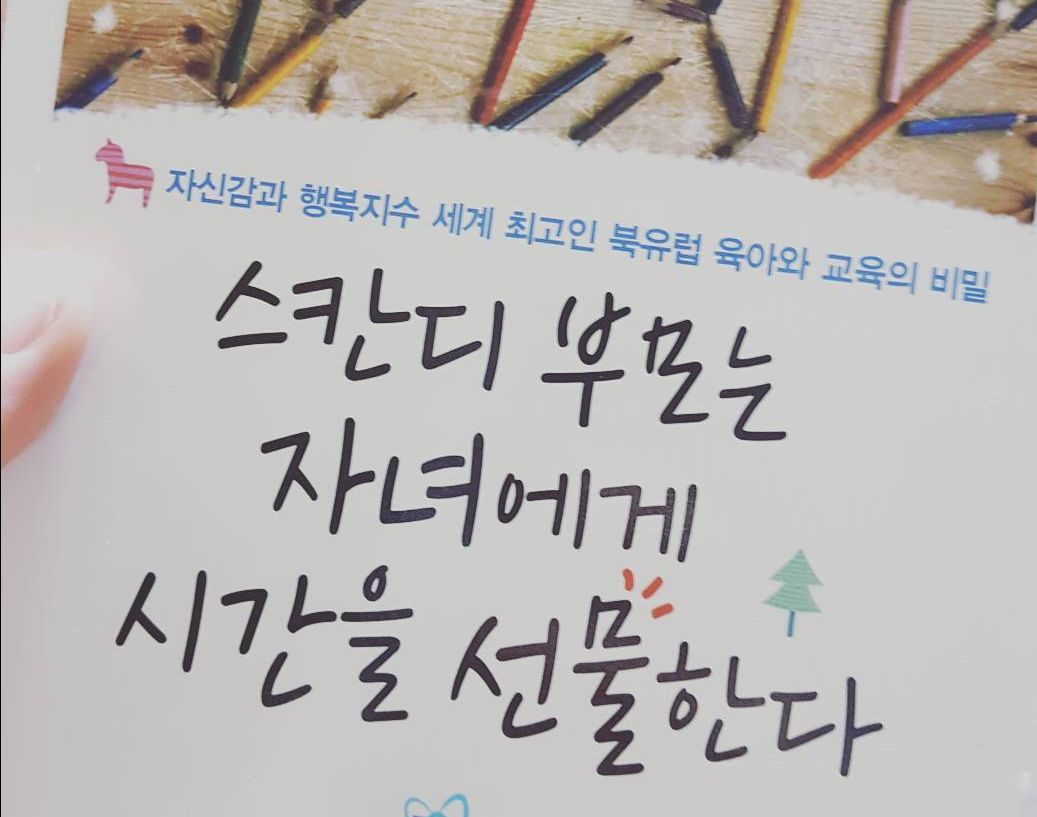 자신감과 행복지수 세계 최고인 북유럽 육아와 교육의 비밀
스칸디 부모는
자녀에게
시간을 선물한다